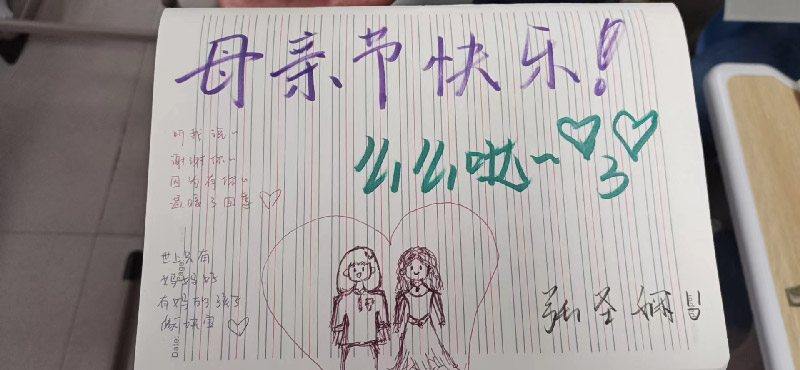 母亲节快乐!
么么哒~♡3♡
听我说~
谢谢你~
因为有你~
温暖了四季♡
世上只有
妈妈好
有妈的孩子
像块宝♡
Date.